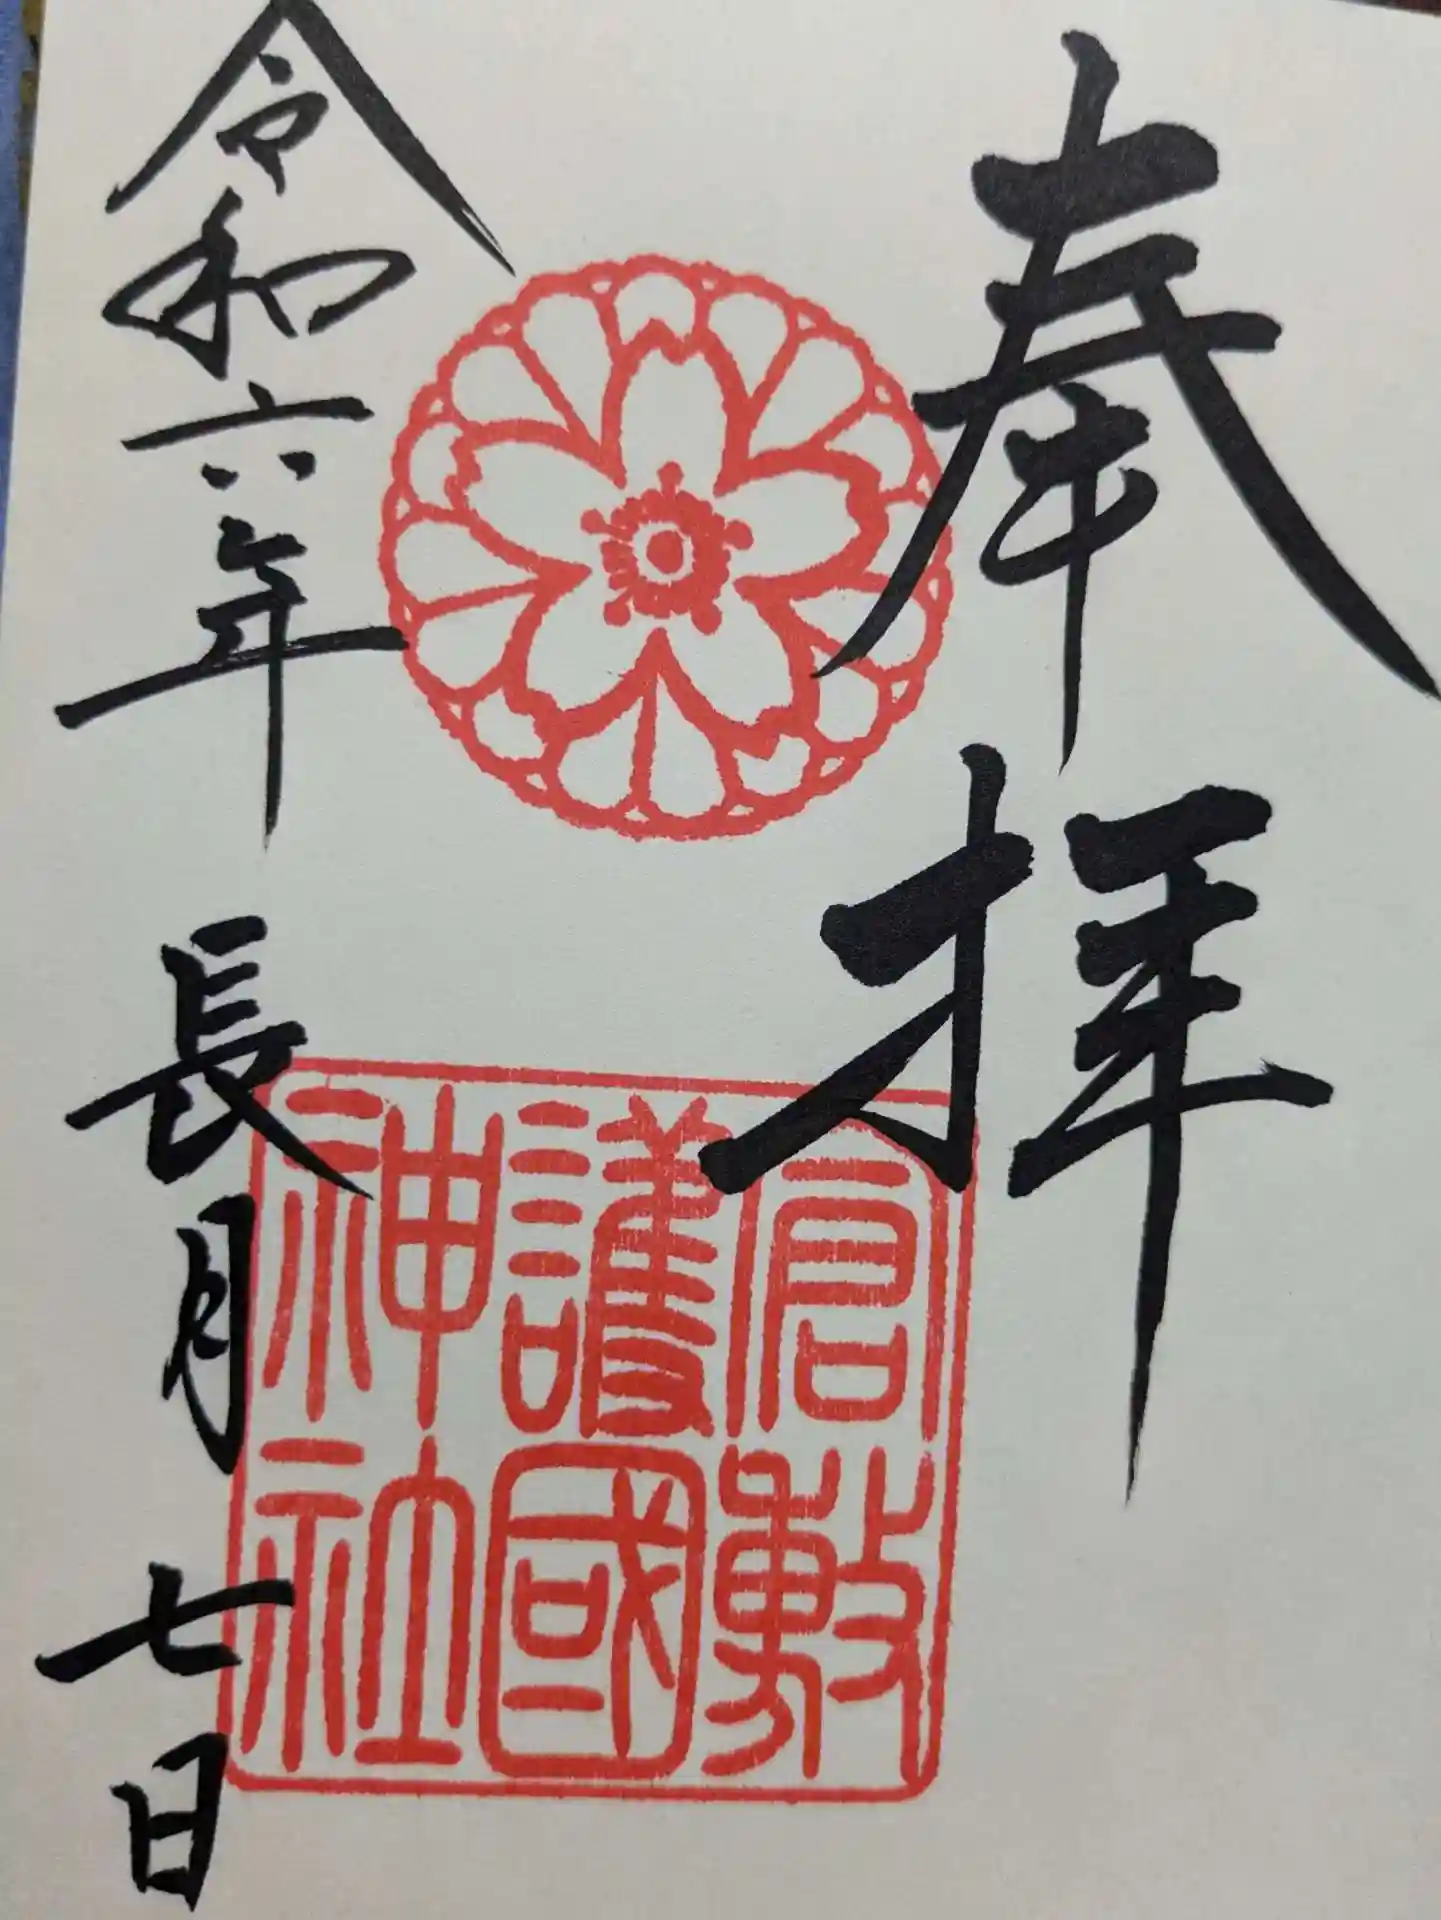 奉拝
倉敷
護國
神社
令和六年長月七日